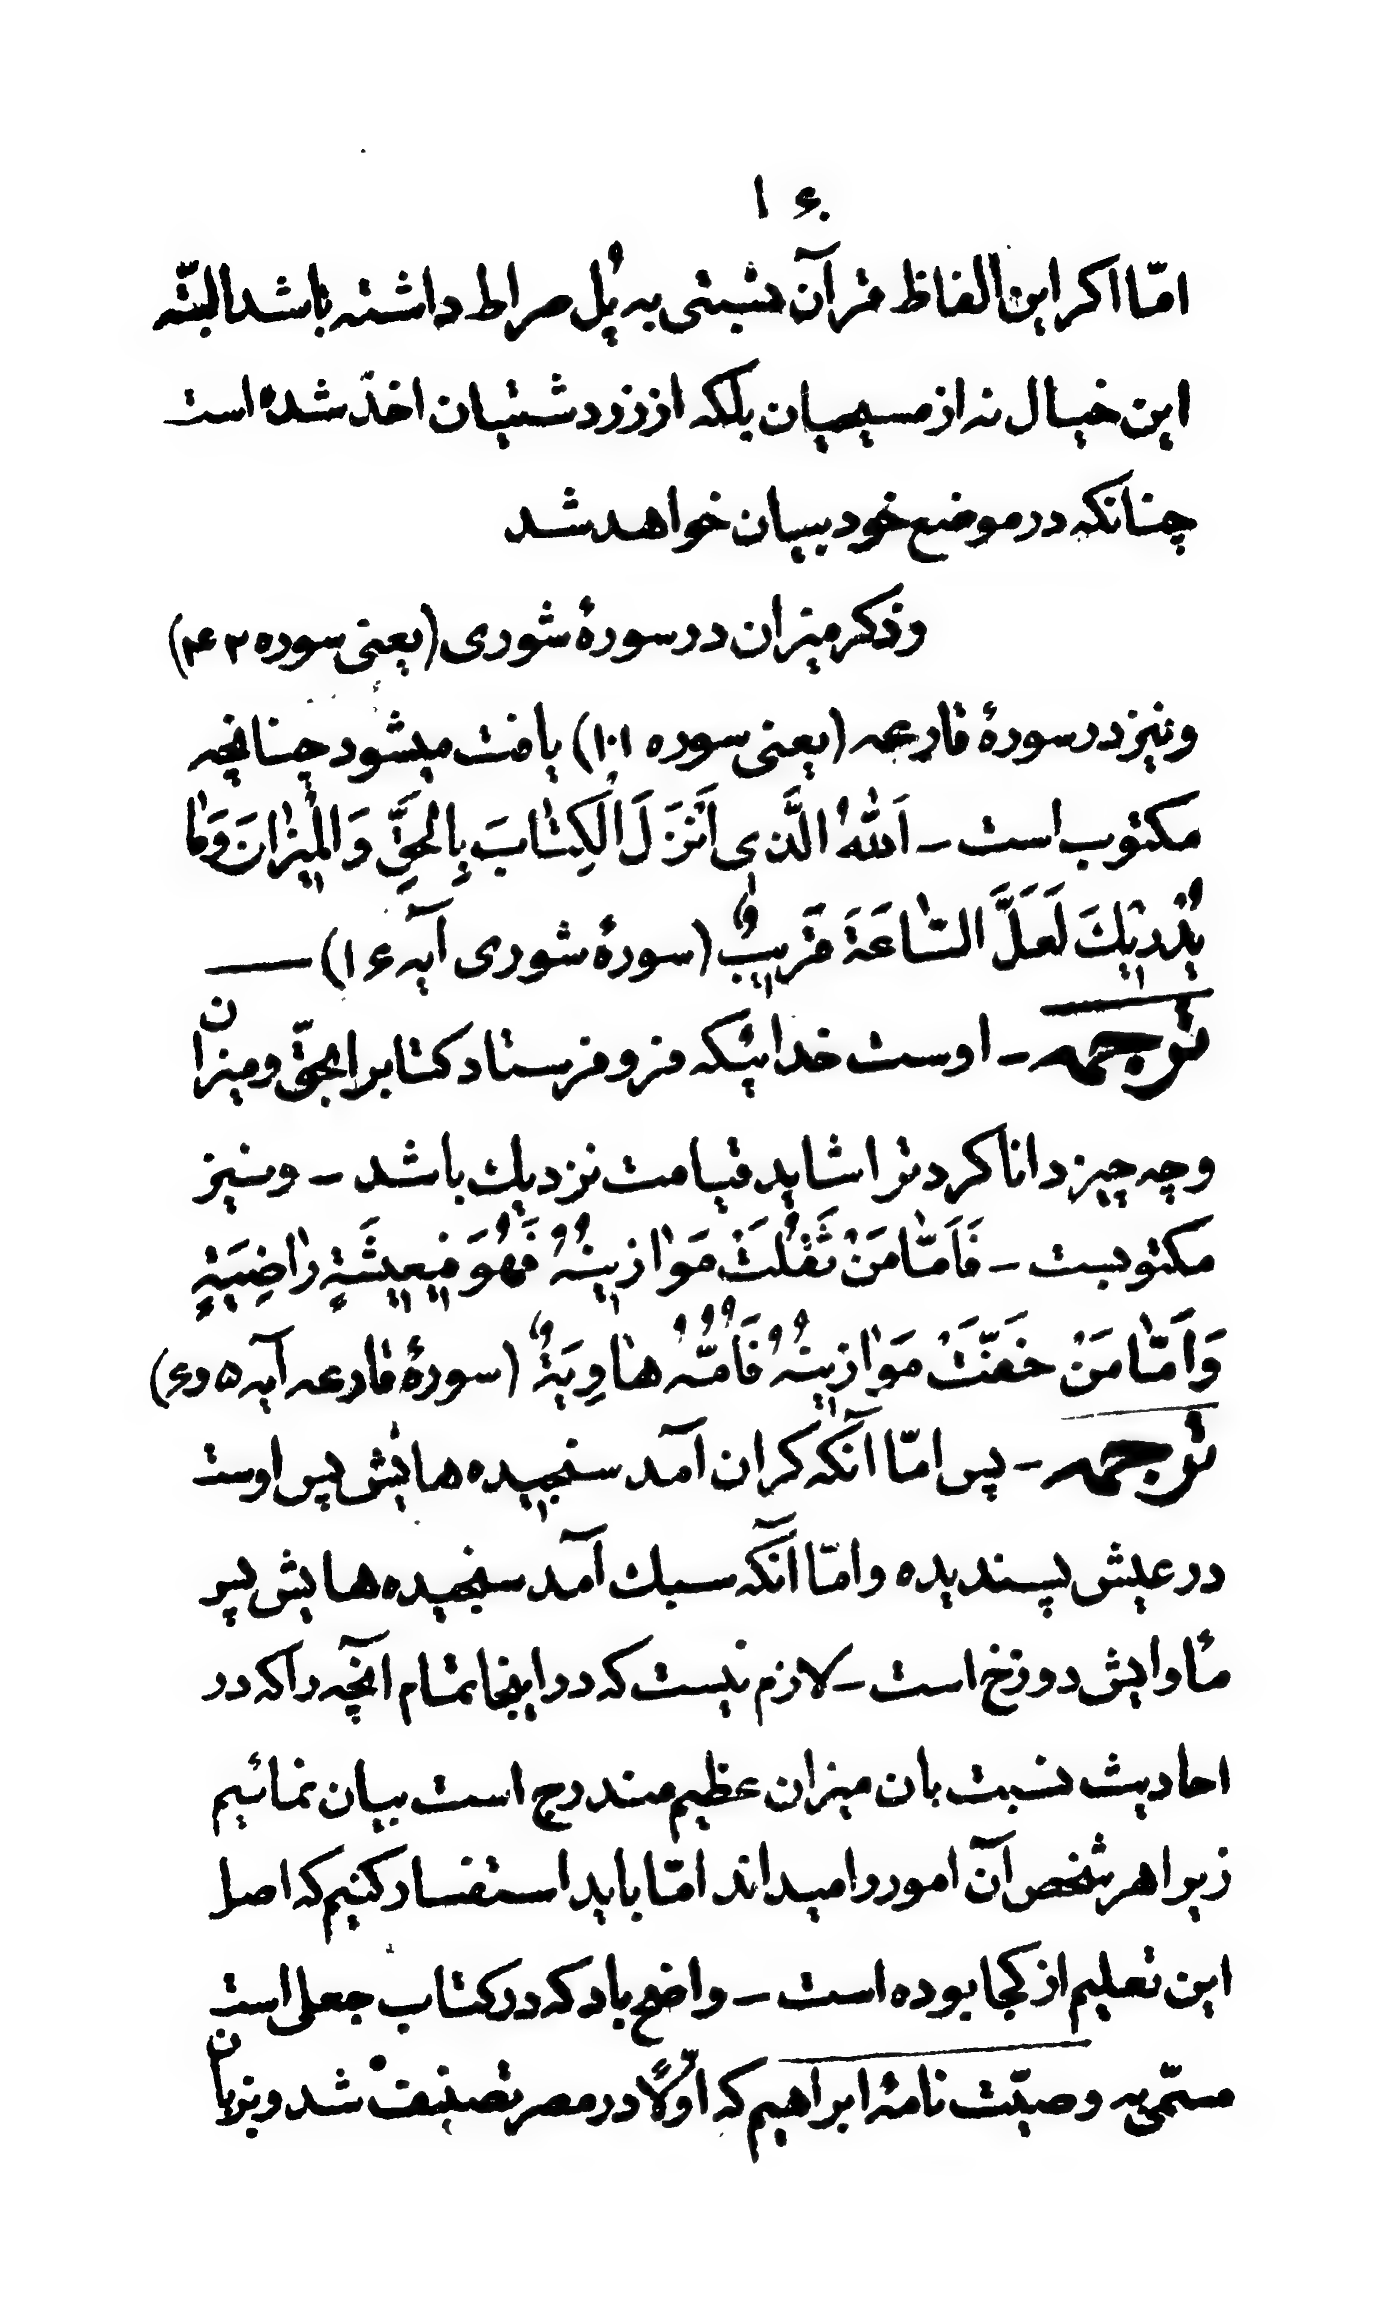 ۱۶۰
امّا اکر این الفاظ قرآن نسبتی به پُل صراط داشته باشد البتّه
این خیال نه از مسیحیان بلکه از زردشتیان اخذ شده است
چنانکه در موضع خود بییان خواهد شد
و ذکر میزان در سورۀ شوری (یعنی سوره ۴۲)
و نیز در سورۀ قارعه (یعنی سوره ۱۰۱) یافت میشود چنانچه
مکتوب است – اَللهُ الَّذی اَنْزَلَ الْکِتٰابَ بِالحَقِّ وَ الْمیٖزٰانَ وَمٰا
یُدْریٖكَ لَعَلَّ السّٰاعَةَ قَریٖبٌ (سورۀ شوری آیه ۱۶) ——
ترجمه – اوست خدائیکه فرو فرستاد کتابرا بحقّ و میزان
و چه چیز دانا کرد ترا شاید قیامت نزدیك باشد – و نیز
مکتوبست – فَاَمّٰا مَنْ ثَقُلَتْ مَوٰازیٖنُهُ فَهُوَ فیٖ عیٖشَةٍ رٰاضِیَةٍ
وَ اَمّٰا مَنْ خَفَّتْ مَوٰازیٖنُهُ فَاُمُّهُ هٰاوِیَةٌ (سورۀ قارعه آیه ۵ و ۶)
ترجمه – پس امّا آنکه کران آمد سنجیده هایش پس اوست
در عیش پسندیده و امّا آنکه سبك آمد سنجیده هایش پس
مأوایش دوزخ است – لازم نیست که در اینجا تمام آنچه را که در
احادیث نسبت بان میزان عظیم مندرج است بیان نمائیم
زیرا هر شخص آن امور را میداند امّا باید استفسار کنیم که اصل
این تعلیم از کجا بوده است – واضح باد که در کتاب جعلی است
مسمّی به وصیّت نامۀ ابراهیم که اوّلاً در مصر تصنیف شد و بزبان